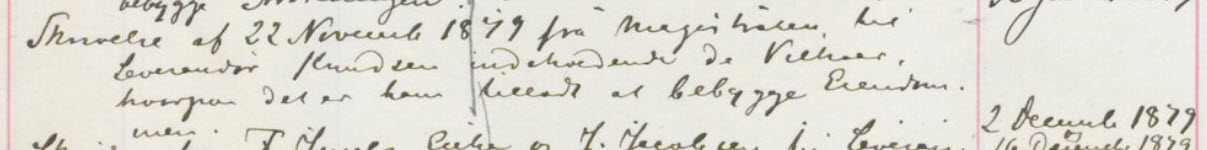 bebygge
Skrivelse af 22 Novemb 1879 fra Magistraten til
Leverandør Knudsen indeholdende de Vilkaar,
hvorpaa det er ham tilladt at bebygge Eiendom-
men.
2 Decemb 1879
T. J. Jacobsen
16 Decemb 1879